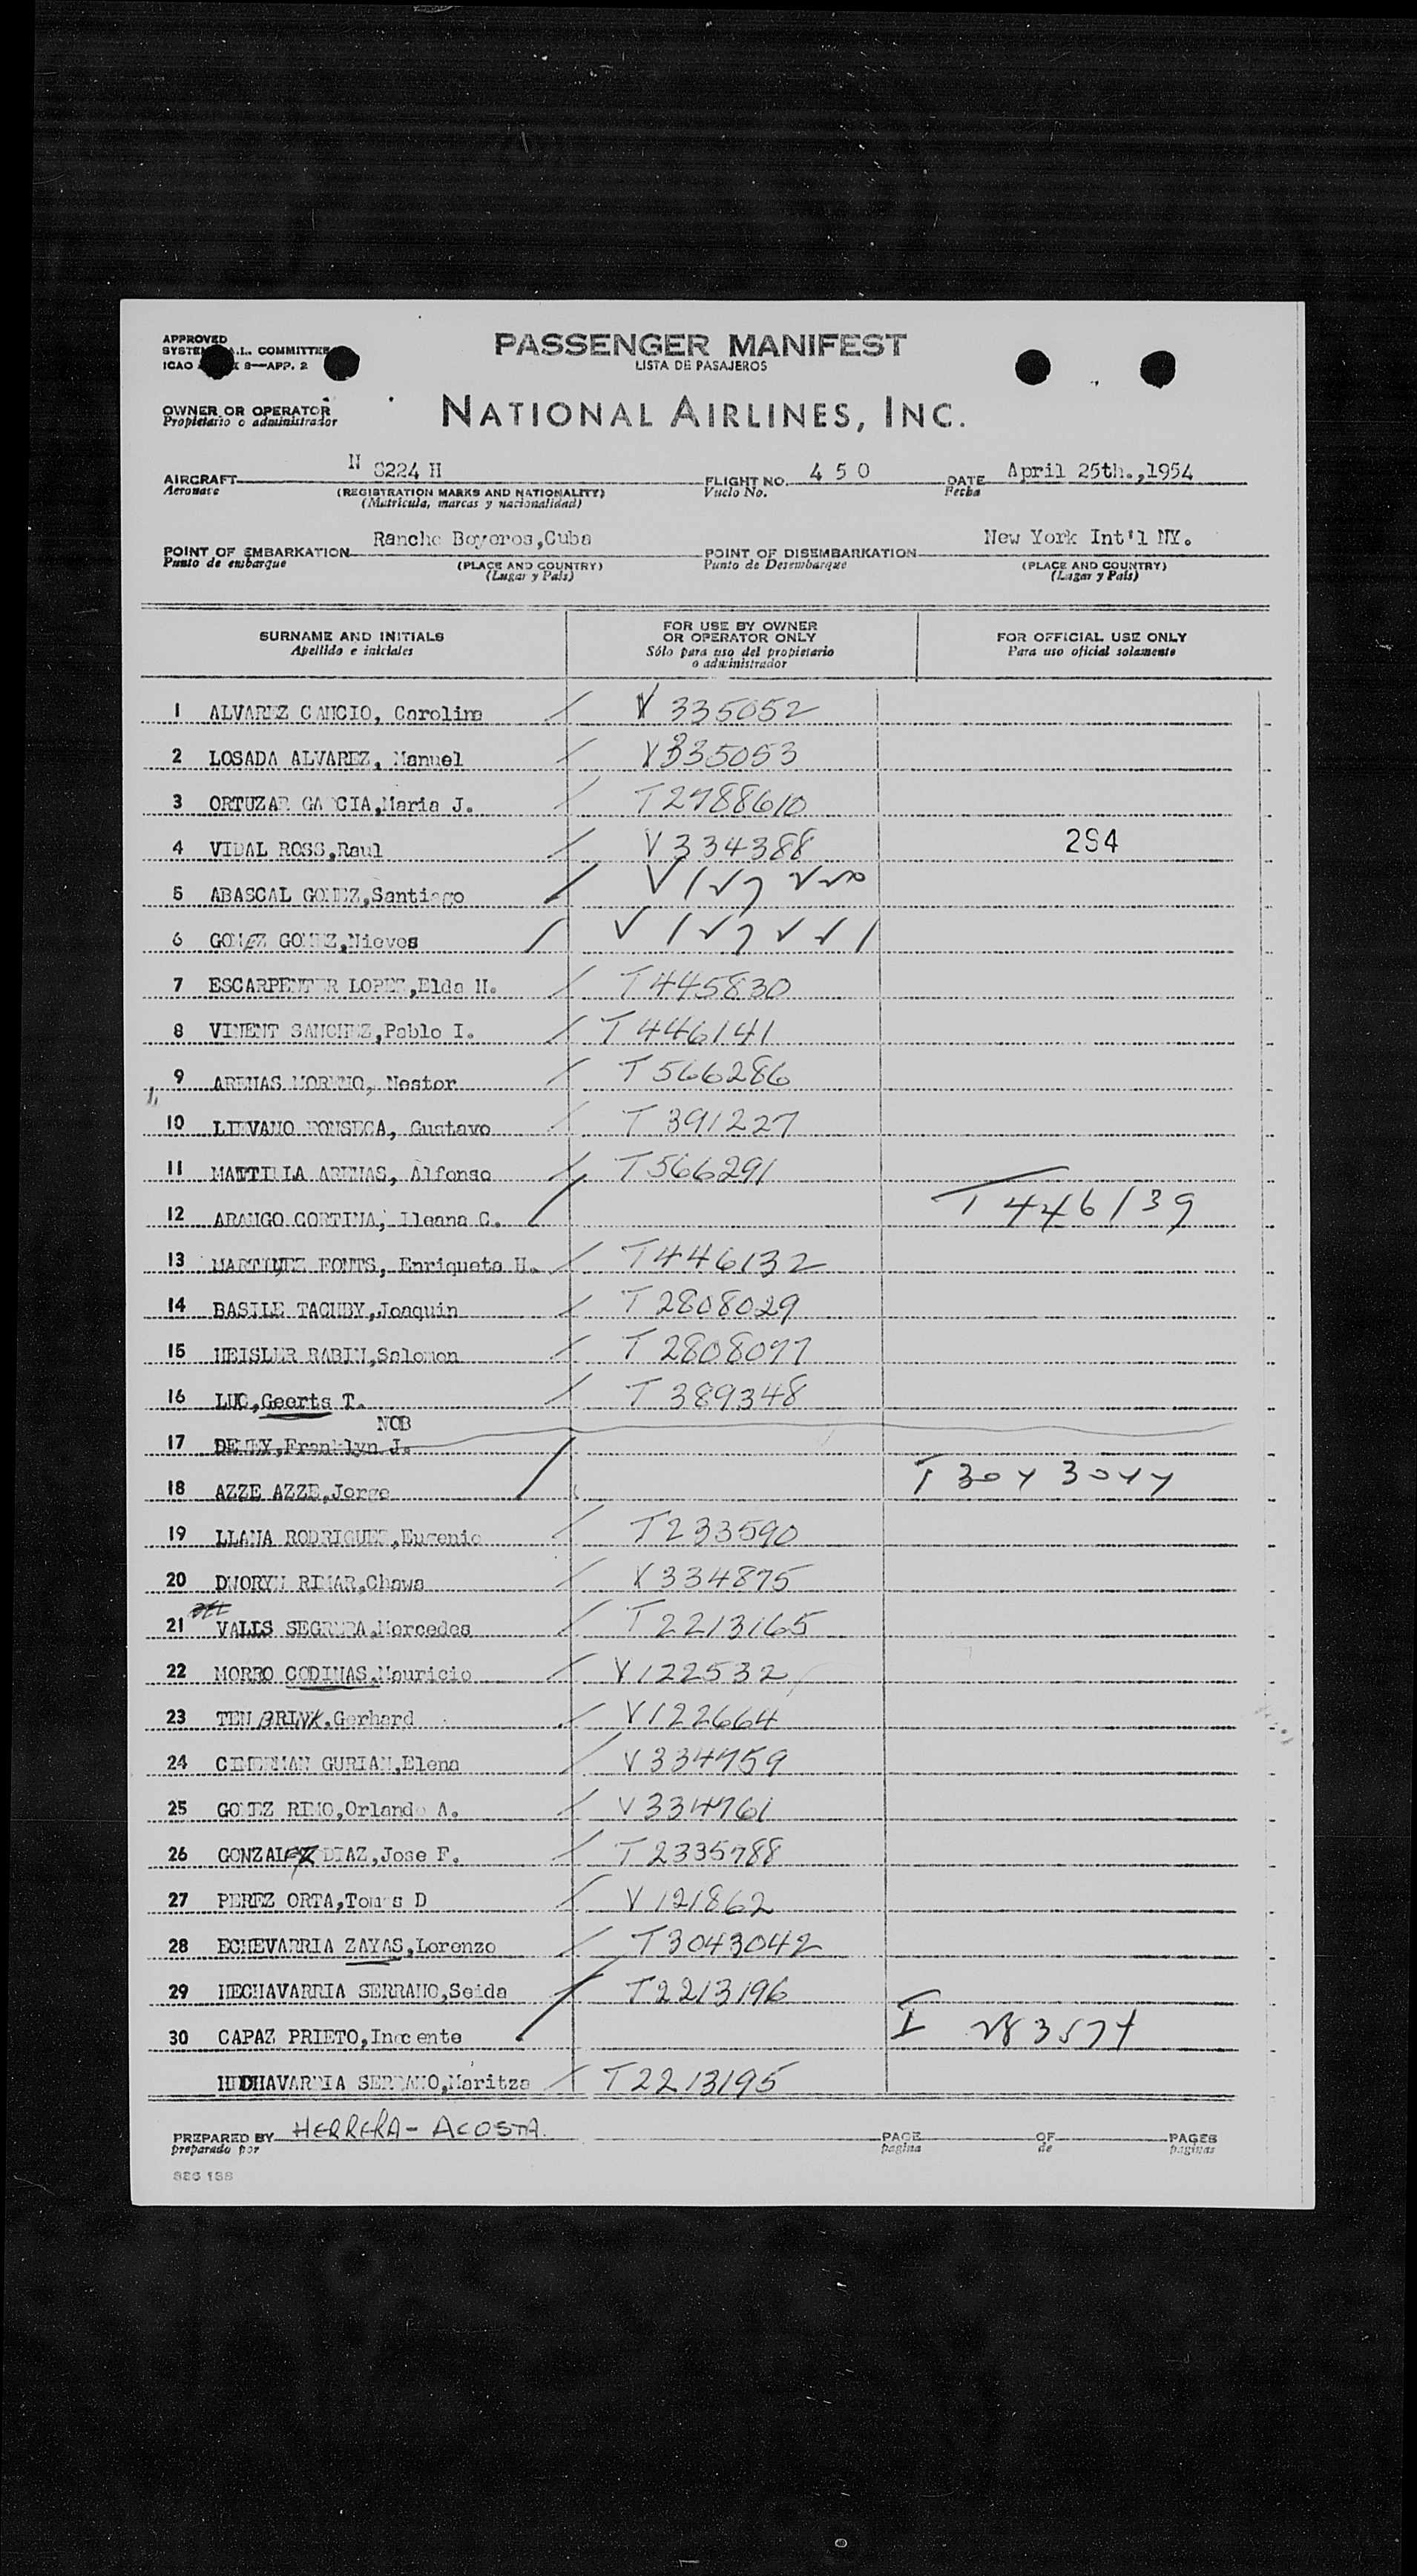 APPROVED
SYSTEM A.L. COMMITTEE
ICAO 9—APP. 2
PASSENGER MANIFEST
LISTA DE PASAJEROS
OWNER OR OPERATOR
Propietario o administrador
NATIONAL AIRLINES, INC.
AIRCRAFT N 8224 H FLIGHT NO. 4 5 0 DATE April 25th.,1954
Aeronave (REGISTRATION MARKS AND NATIONALITY) Vuelo No. Fecha
(Matricula, marcas y nacionalidad)
POINT OF EMBARKATION Rancho Boyeros,Cuba POINT OF DISEMBARKATION New York Int'l NY.
Punto de embarque (PLACE AND COUNTRY) Punto de Desembarque (PLACE AND COUNTRY)
(Lugar y Pais) (Lugar y Pais)
SURNAME AND INITIALS FOR USE BY OWNER OR OPERATOR ONLY FOR OFFICIAL USE ONLY
Apellido e iniciales Sólo para uso del propietario o administrador Para uso oficial solamente
1 ALVAREZ CANCIO, Carolina / V 335052
2 LOSADA ALVAREZ, Manuel / V335053
3 ORTUZAR GARCIA,Maria J. / T2788610
4 VIDAL ROSS,Raul / V334388 294
5 ABASCAL GOMEZ,Santiago /
6 GOMEZ GOMEZ,Nieves /
7 ESCARPENTER LOPEZ,Elda H. / T445830
8 VINENT SANCHEZ,Pablo I. / T446141
9 ARENAS MORENO, Nestor / T566286
10 LIEVANO FONSECA, Gustavo / T391227
11 MANTILLA ARENAS, Alfonso / T566291
12 ARANGO CORTINA, Ileana C. / T446139
13 MARTINEZ FONTS, Enriqueta H. / T446132
14 BASILE TACHBY,Joaquin / T2808029
15 HEISLER RABIN,Salomon / T2808077
16 LUC,Geerts T. / T389348
NOB
17 DEWEY,Franklyn J.
18 AZZE AZZE,Jorge /
19 LLANA RODRIGUEZ,Eugenio / T233590
20 DWORYN RIMAR,Chawa / V334875
21 VALLS SEGRERA,Mercedes / T2213165
22 MORRO CODINAS,Mauricio / V122532
23 TEN BRINK,Gerhard / V122664
24 CIMERMAN GURIAN,Elena / V334759
25 GOMEZ RIMO,Orlando A. / V334761
26 GONZALEZ DIAZ,Jose F. / T2335788
27 PEREZ ORTA,Tomas D / V121862
28 ECHEVARRIA ZAYAS,Lorenzo / T3043042
29 HECHAVARRIA SERRANO,Seida / T2213196
30 CAPAZ PRIETO,Inocente /
HECHAVARRIA SERRANO,Maritza / T2213195
PREPARED BY HERRERA - ACOSTA PAGE OF PAGES
preparado por pagina de paginas